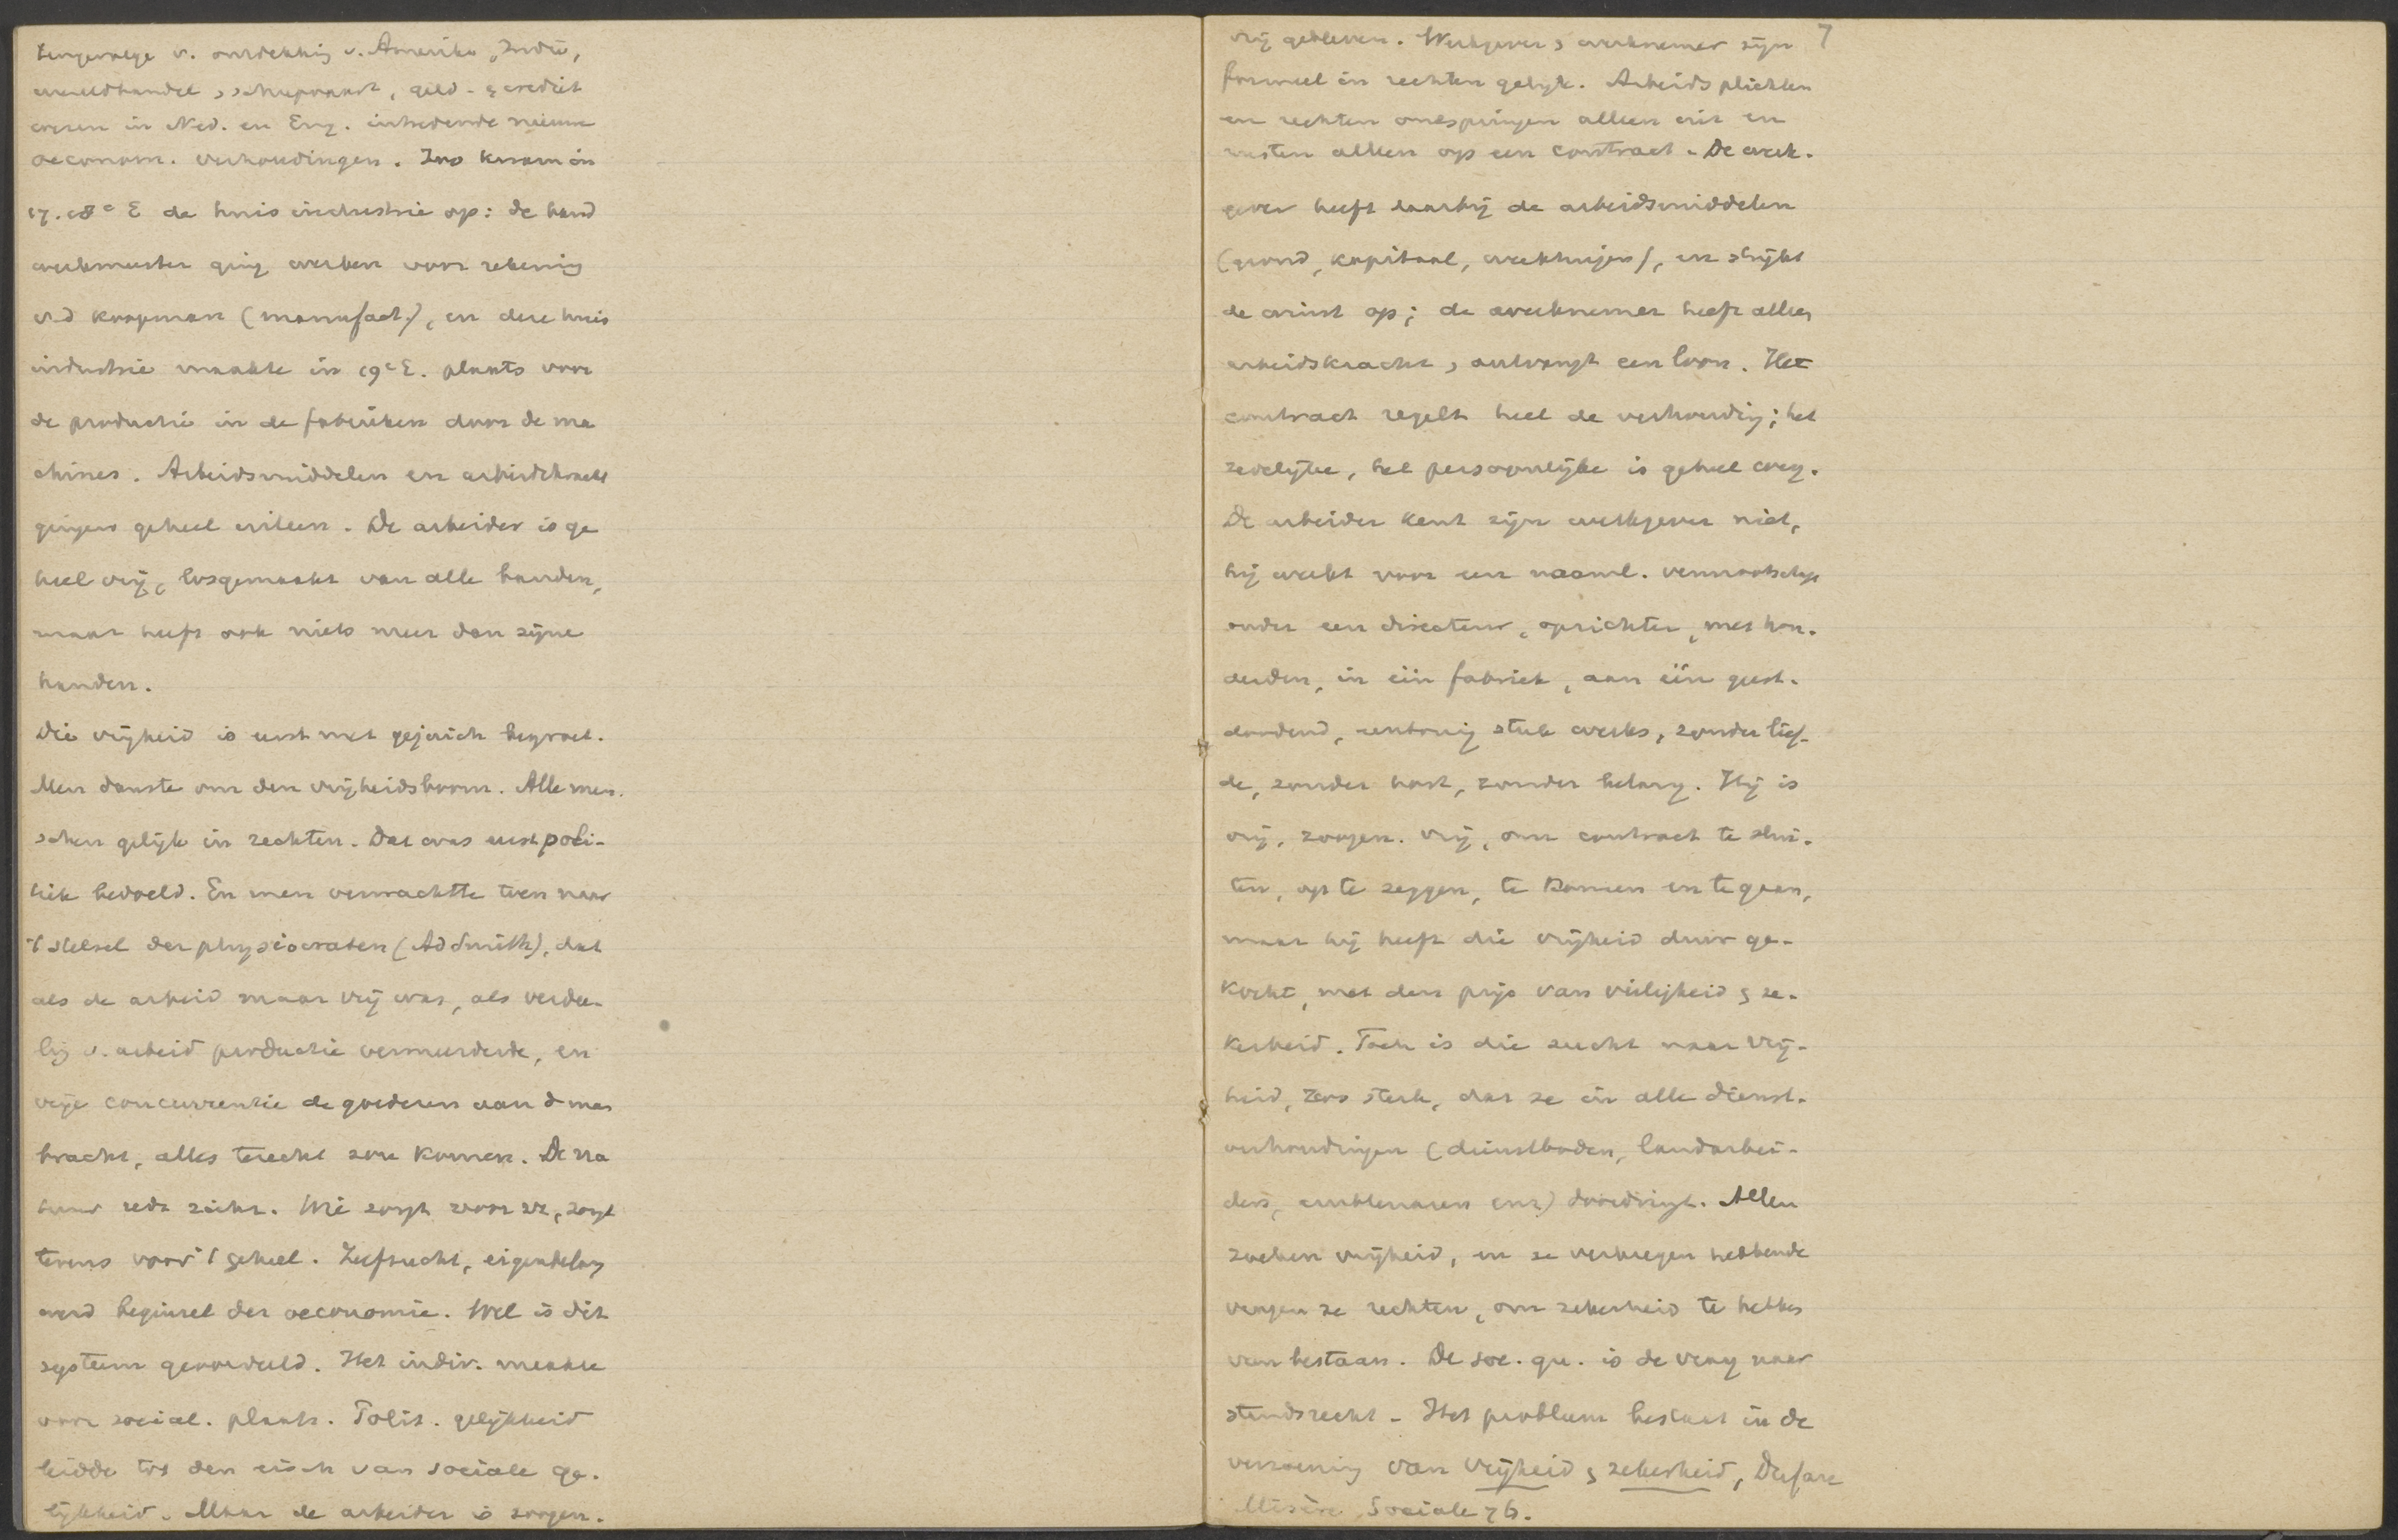 tengevolge v. ontdekking v. Amerika, Indië,
wereldhandel, scheepvaart, geld- & crediet
wezen in Ned. en Eng. intredende nieuwe
oeconom. verhoudingen. Zoo kwam in
17. 18e E de huisindustrie op: de hand
werkmeester ging werken voor rekening
v. d koopman (manufact.), en deze huis
industrie maakte in 19e E. plaats voor
de productie in de fabrieken door de ma
chines. Arbeidsmiddelen en arbeidskracht
gingen geheel uiteen. De arbeider is ge
heel vrij, losgemaakt van alle banden,
maar heeft ook niets meer dan zijne
handen.
Die vrijheid is eerst met gejuich begroet.
Men danste om den vrijheidsboom. Alle men-
schen gelijk in rechten. Dat was eerst poli-
tiek bedoeld. En men verwachtte toen naar
't stelsel der physiocraten (Ad Smith), dat
als de arbeid maar vrij was, als verdee-
lg v. arbeid productie vermeerderde, en
vrije concurrentie de goederen aan d man
bracht, alles terecht zou komen. De na
tuur redt zichz. Wie zorgt voor zz, zorgt
tevens voor 't geheel. Zelfzucht, eigenbelang
werd beginsel der oeconomie. Wel is dit
systeem geoordeeld. Het indiv. maakte
voor social. plaats. Polit. gelijkheid
leidde tot den eisch van sociale ge-
lijkheid. Maar de arbeider is zoogen.
7
vrij gebleven. Werkgever & werknemer zijn
formeel in rechten gelijk. Arbeidsplichten
en rechten ontspringen alleen uit en
rusten alleen op een contract. De werk-
gever heeft daarbij de arbeidsmiddelen
(grond, kapitaal, werktuigen), en strijkt
de winst op; de werknemer heeft alleen
arbeidskracht, ontvangt een loon. Het
contract regelt heel de verhouding; het
zedelijke, het persoonlijke is geheel weg.
De arbeider kent zijn werkgever niet,
hij werkt voor een naaml. vennootschap
onder een directeur, opzichter, met hon-
derden, in één fabriek, aan één geest-
doodend, eentonig stuk werks, zonder lief-
de, zonder hart, zonder belang. Hij is
vrij, zoogen. vrij, om contract te slui-
ten, op te zeggen, te komen en te gaan,
maar hij heeft die vrijheid duur ge-
kocht, met den prijs van veiligheid & ze-
kerheid. Toch is die zucht naar vrij-
heid, zoo sterk, dat ze in alle dienst-
verhoudingen (dienstboden, landarbei-
ders, ambtenaren enz) doordringt. Allen
zoeken vrijheid, en ze verkregen hebbende
vragen ze rechten, om zekerheid te hebben
van bestaan. De soc. qu. is de vraag naar
standsrecht. Het probleem bestaat in de
verzoening van vrijheid & zekerheid,
Misère Sociale 76.